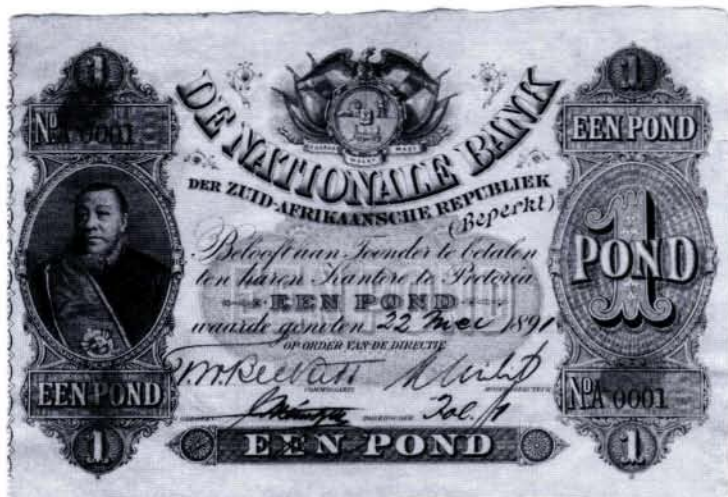 1
1
No A 0001
EEN POND
EENDRAGT MAAKT MAGT
DE NATIONALE BANK
DER ZUID-AFRIKAANSCHE REPUBLIEK
(Beperkt)
Belooft aan Toonder te betalen
ten haren Kantore te Pretoria
EEN POND
waarde genoten 22 Mei 1891
OP ORDER VAN DE DIRECTIE
1 POND
COMMISSARIS
EEN POND
No A 0001
Fol. 1
1
EEN POND
1